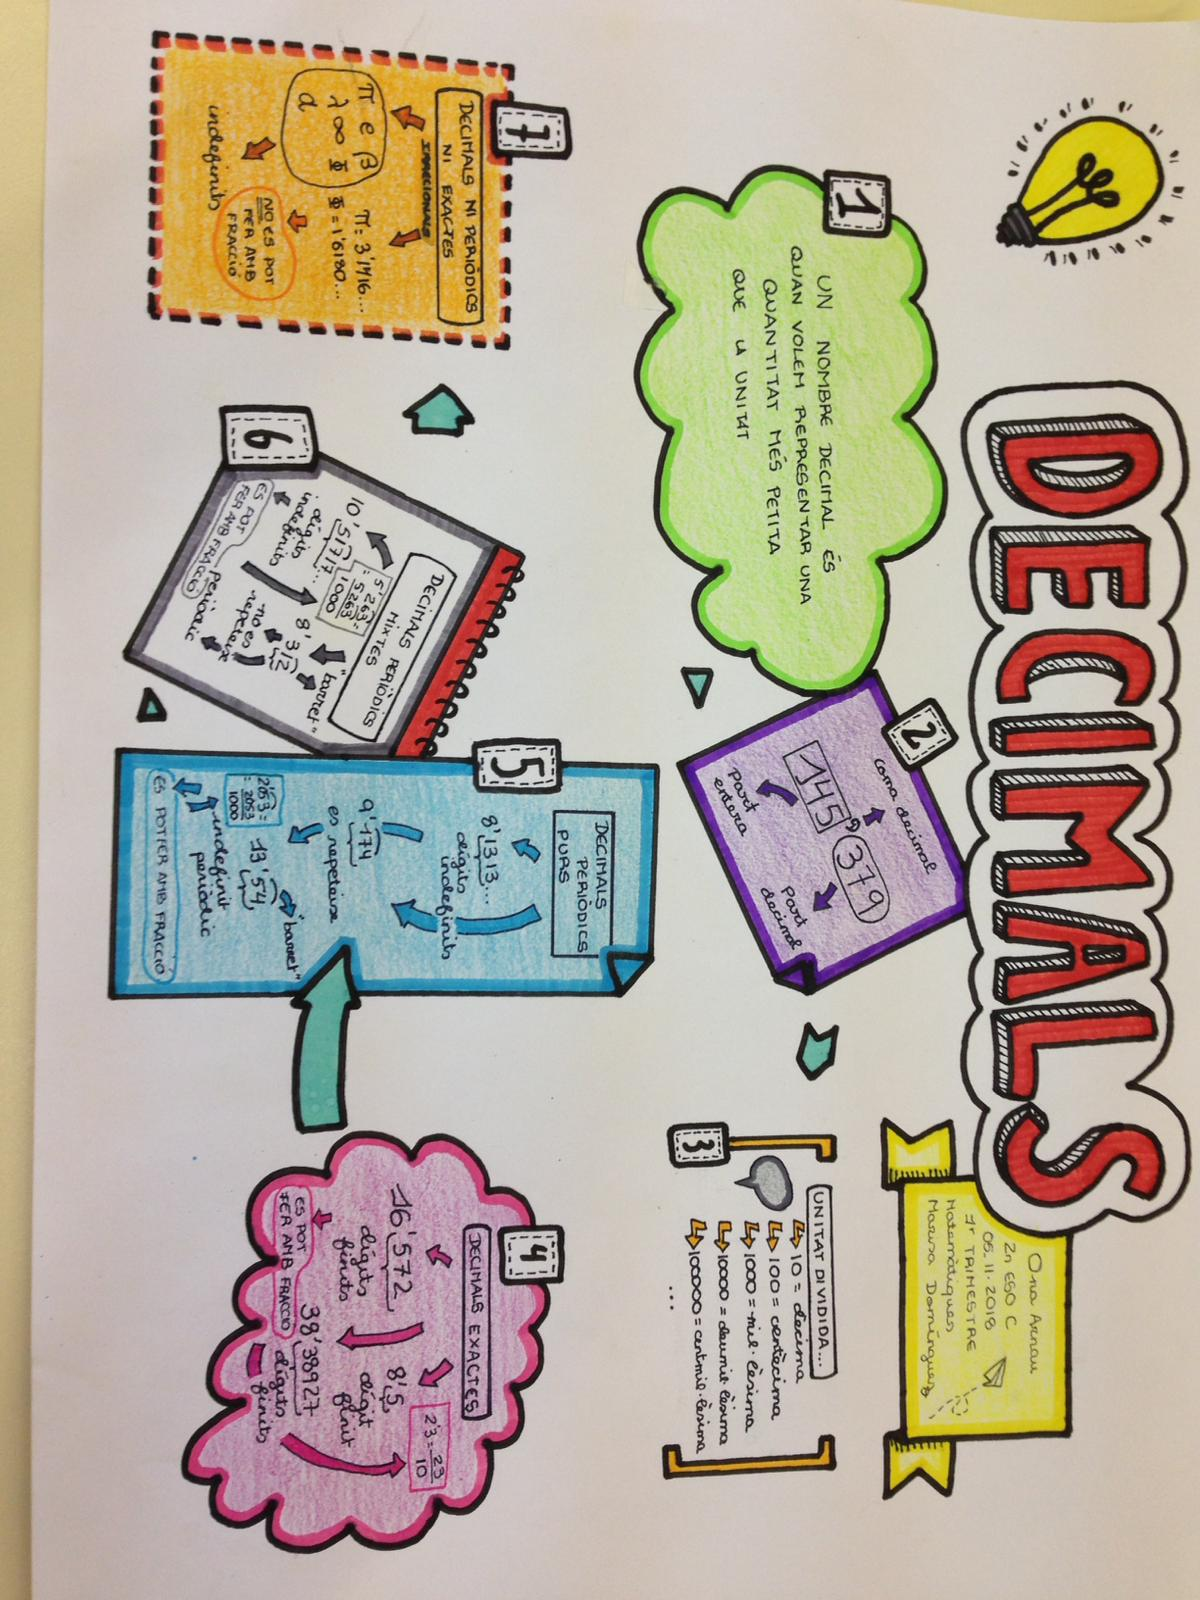 DECIMALS
Ona Arnau
2n ESO C
05.11.2018
1r TRIMESTRE
Matemàtiques
Marisa Domínguez
1
UN NOMBRE DECIMAL ÉS
QUAN VOLEM REPRESENTAR UNA
QUANTITAT MÉS PETITA
QUE LA UNITAT
2
coma decimal
145,379
Part
entera
Part
decimal
3
UNITAT DIVIDIDA...
10 = dècima
100 = centècima
1000 = mil·lèsima
10000 = deumil·lèsima
100000 = centmil·lèsima
...
4
DECIMALS EXACTES
16'572
dígits
finits
8'5
dígit
finit
2'3 = 23
10
38'38927
dígits
finits
ES POT
FER AMB FRACCIÓ
5
DECIMALS
PERIÒDICS
PURS
8'1313...
dígits
indefinits
9'174
es repeteixe
13'54
"barret"
indefinit
periòdic
2'053 =
= 2053
1000
ES POT FER AMB FRACCIÓ
6
DECIMALS PERIÒDICS
MIXTES
5'263 =
= 5263
1000
10'51717...
dígits
indefinits
8'312
"barret"
no es
repeteixe
periòdic
ES POT
FER AMB FRACCIÓ
7
DECIMALS NI PERIÒDICS
NI EXACTES
IRRACIONALS
π e β
λ ∞ Φ
α
π = 3'1416...
Φ = 1'6180...
NO ES POT
FER AMB
FRACCIÓ
indefinits